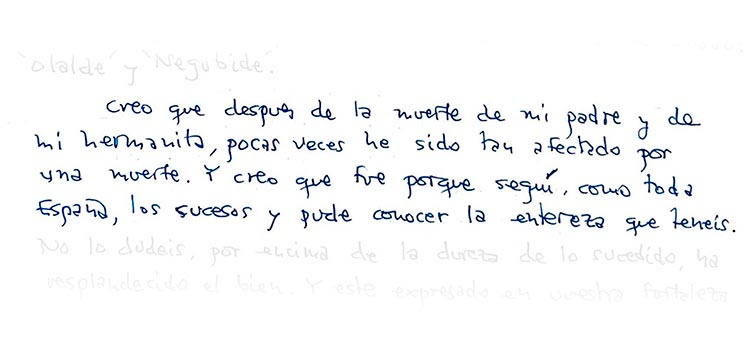 'Olalde' y 'Negubide'.
Creo que despues de la muerte de mi padre y de
mi hermanita, pocas veces he sido tan afectado por
una muerte. Y creo que fue porque seguí, como toda
España, los sucesos y pude conocer la entereza que teneis.
No lo dudeis, por encima de la dureza de lo sucedido, ha
resplandecido el bien. Y este expresado en vuestra fortaleza